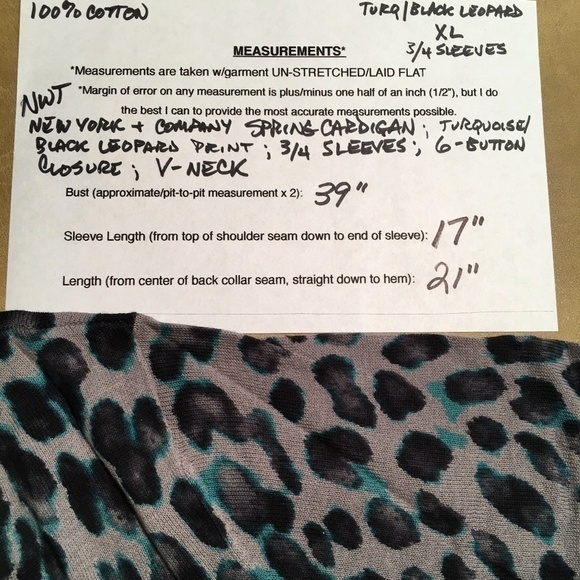 100% COTTON
TURQ/BLACK LEOPARD
XL
3/4 SLEEVES
MEASUREMENTS*
*Measurements are taken w/garment UN-STRETCHED/LAID FLAT
*Margin of error on any measurement is plus/minus one half of an inch (1/2"), but I do
the best I can to provide the most accurate measurements possible.
NWT
NEW YORK + COMPANY SPRING CARDIGAN; TURQUOISE/
BLACK LEOPARD PRINT; 3/4 SLEEVES; 6-BUTTON
CLOSURE; V-NECK
Bust (approximate/pit-to-pit measurement x 2): 39"
Sleeve Length (from top of shoulder seam down to end of sleeve): 17"
Length (from center of back collar seam, straight down to hem): 21"